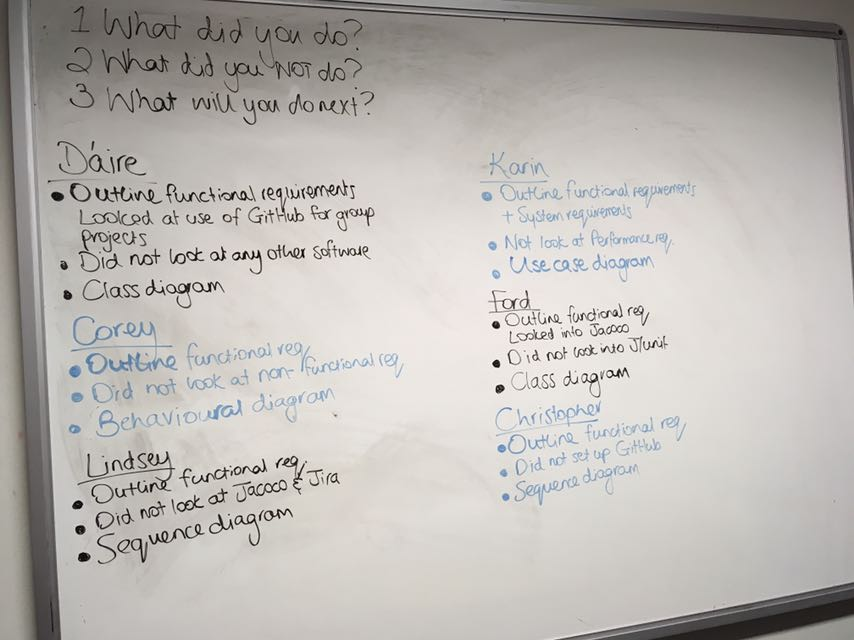 1 What did you do?
2 What did you NOT do?
3 What will you do next?
Dáire
• Outline functional requirements
Looked at use of GitHub for group
projects
• Did not look at any other software
• Class diagram
Corey
• Outline functional req
• Did not look at non-functional req
• Behavioural diagram
Lindsey
• Outline functional req.
• Did not look at Jacoco & Jira
• Sequence diagram
Karin
• Outline functional requirements
+ System requirements
• Not look at Performance req.
• Use case diagram
Ford
• Outline functional req
Looked into Jacoco
• Did not look into J/unit
• Class diagram
Christopher
• Outline functional req
• Did not set up GitHub
• Sequence diagram